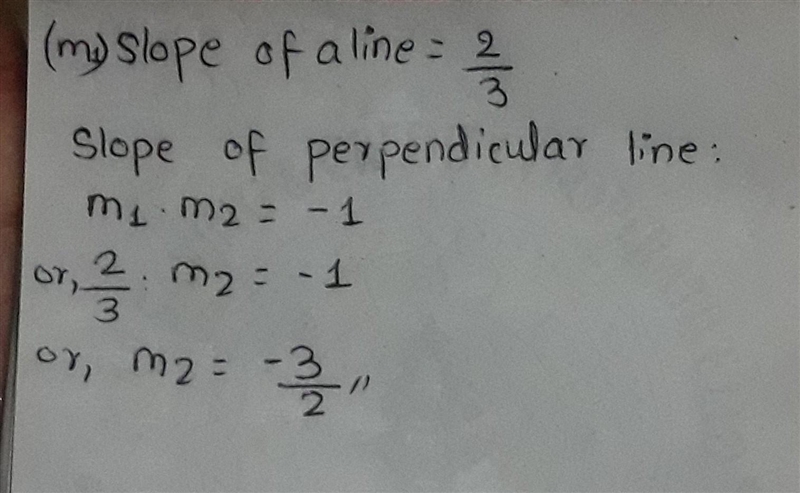 (m1) Slope of a line = 2/3
Slope of perpendicular line:
m1 . m2 = -1
or, 2/3 . m2 = -1
or, m2 = -3/2 ,,